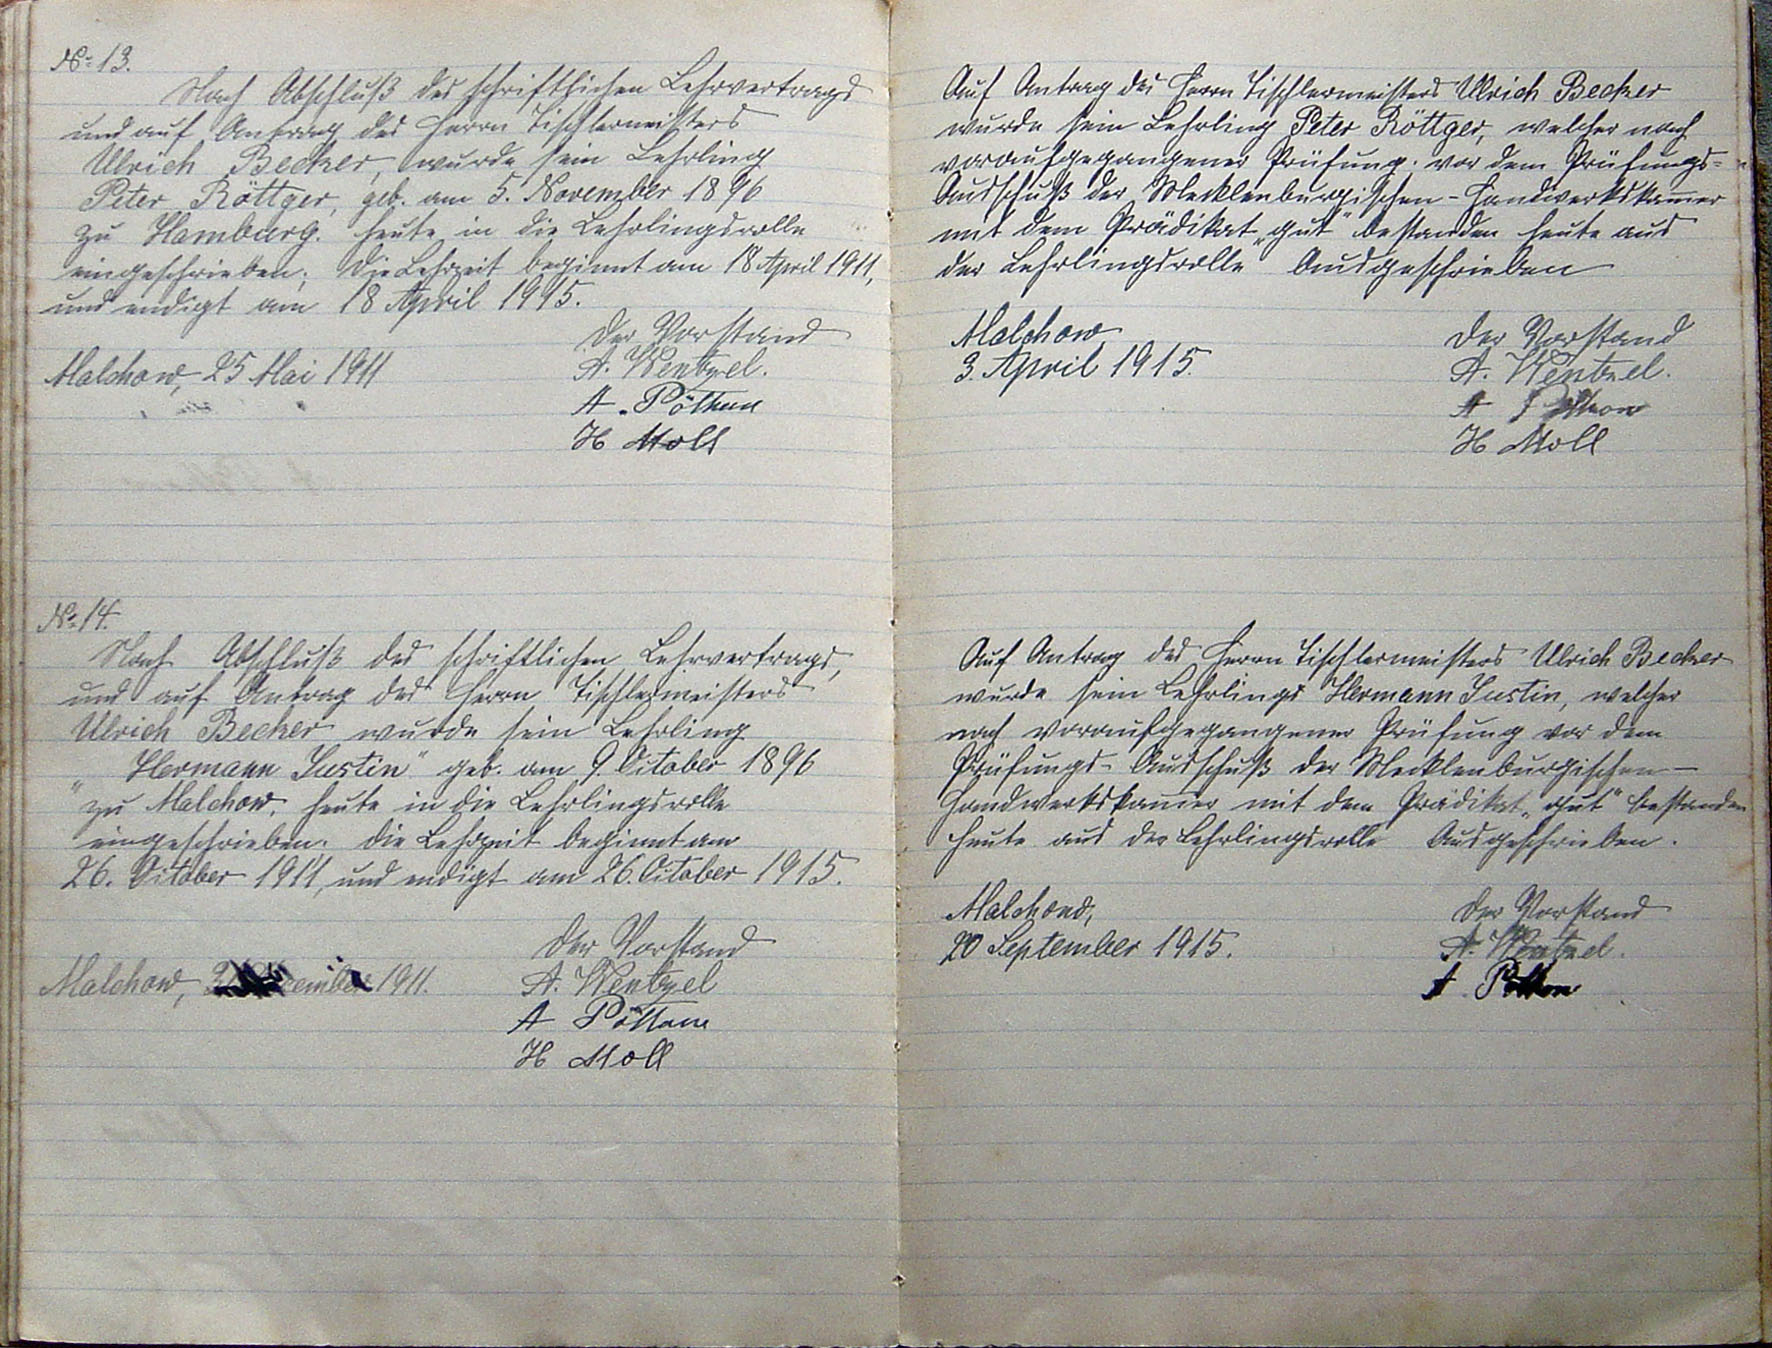 No 13.
Nach Abschluß des schriftlichen Lehrvertrags
und auf Antrag des Herrn Tischlermeisters
Ulrich Becker, wurde sein Lehrling
Peter Röttger, geb. am 5. November 1896
zu Hamburg. heute in die Lehrlingsrolle
eingeschrieben; Die Lehrzeit beginnt am 18 April 1911,
und endigt am 18 April 1915.
Der Vorstand
Malchow, 25 Mai 1911
A. Wentzel.
A. Pöltow
H Moll
No 14.
Nach Abschluß des schriftlichen Lehrvertrags,
und auf Antrag des Herrn Tischlermeisters
Ulrich Becker wurde sein Lehrling
"Hermann Justin" geb. am 9. October 1896
zu Malchow, heute in die Lehrlingsrolle
eingeschrieben. die Lehrzeit beginnt am
26. October 1911, und endigt am 26. October 1915.
Der Vorstand
Malchow, 1911.
A. Wentzel
A Pöltow
H Moll
Auf Antrag des Herrn Tischlermeisters Ulrich Becker
wurde sein Lehrling Peter Röttger, welcher nach
voraufgegangener Prüfung, vor dem Prüfungs-
Ausschuß der Mecklenburgischen-Handwerkskammer
mit dem Prädikat „gut" bestanden heute aus
der Lehrlingsrolle Ausgeschrieben
Malchow
3. April 1915.
Der Vorstand
A. Wentzel.
A Pöltow
H Moll
Auf Antrag des Herrn Tischlermeisters Ulrich Becker
wurde sein Lehrlings Hermann Justin, welcher
nach voraufgegangener Prüfung vor dem
Prüfungs-Ausschuß der Mecklenburgischen-
Handwerkskammer mit dem Prädikat „gut" bestanden
heute aus der Lehrlingsrolle Ausgeschrieben.
Malchow,
20 September 1915.
Der Vorstand
A. Wentzel.
A. Pöltow